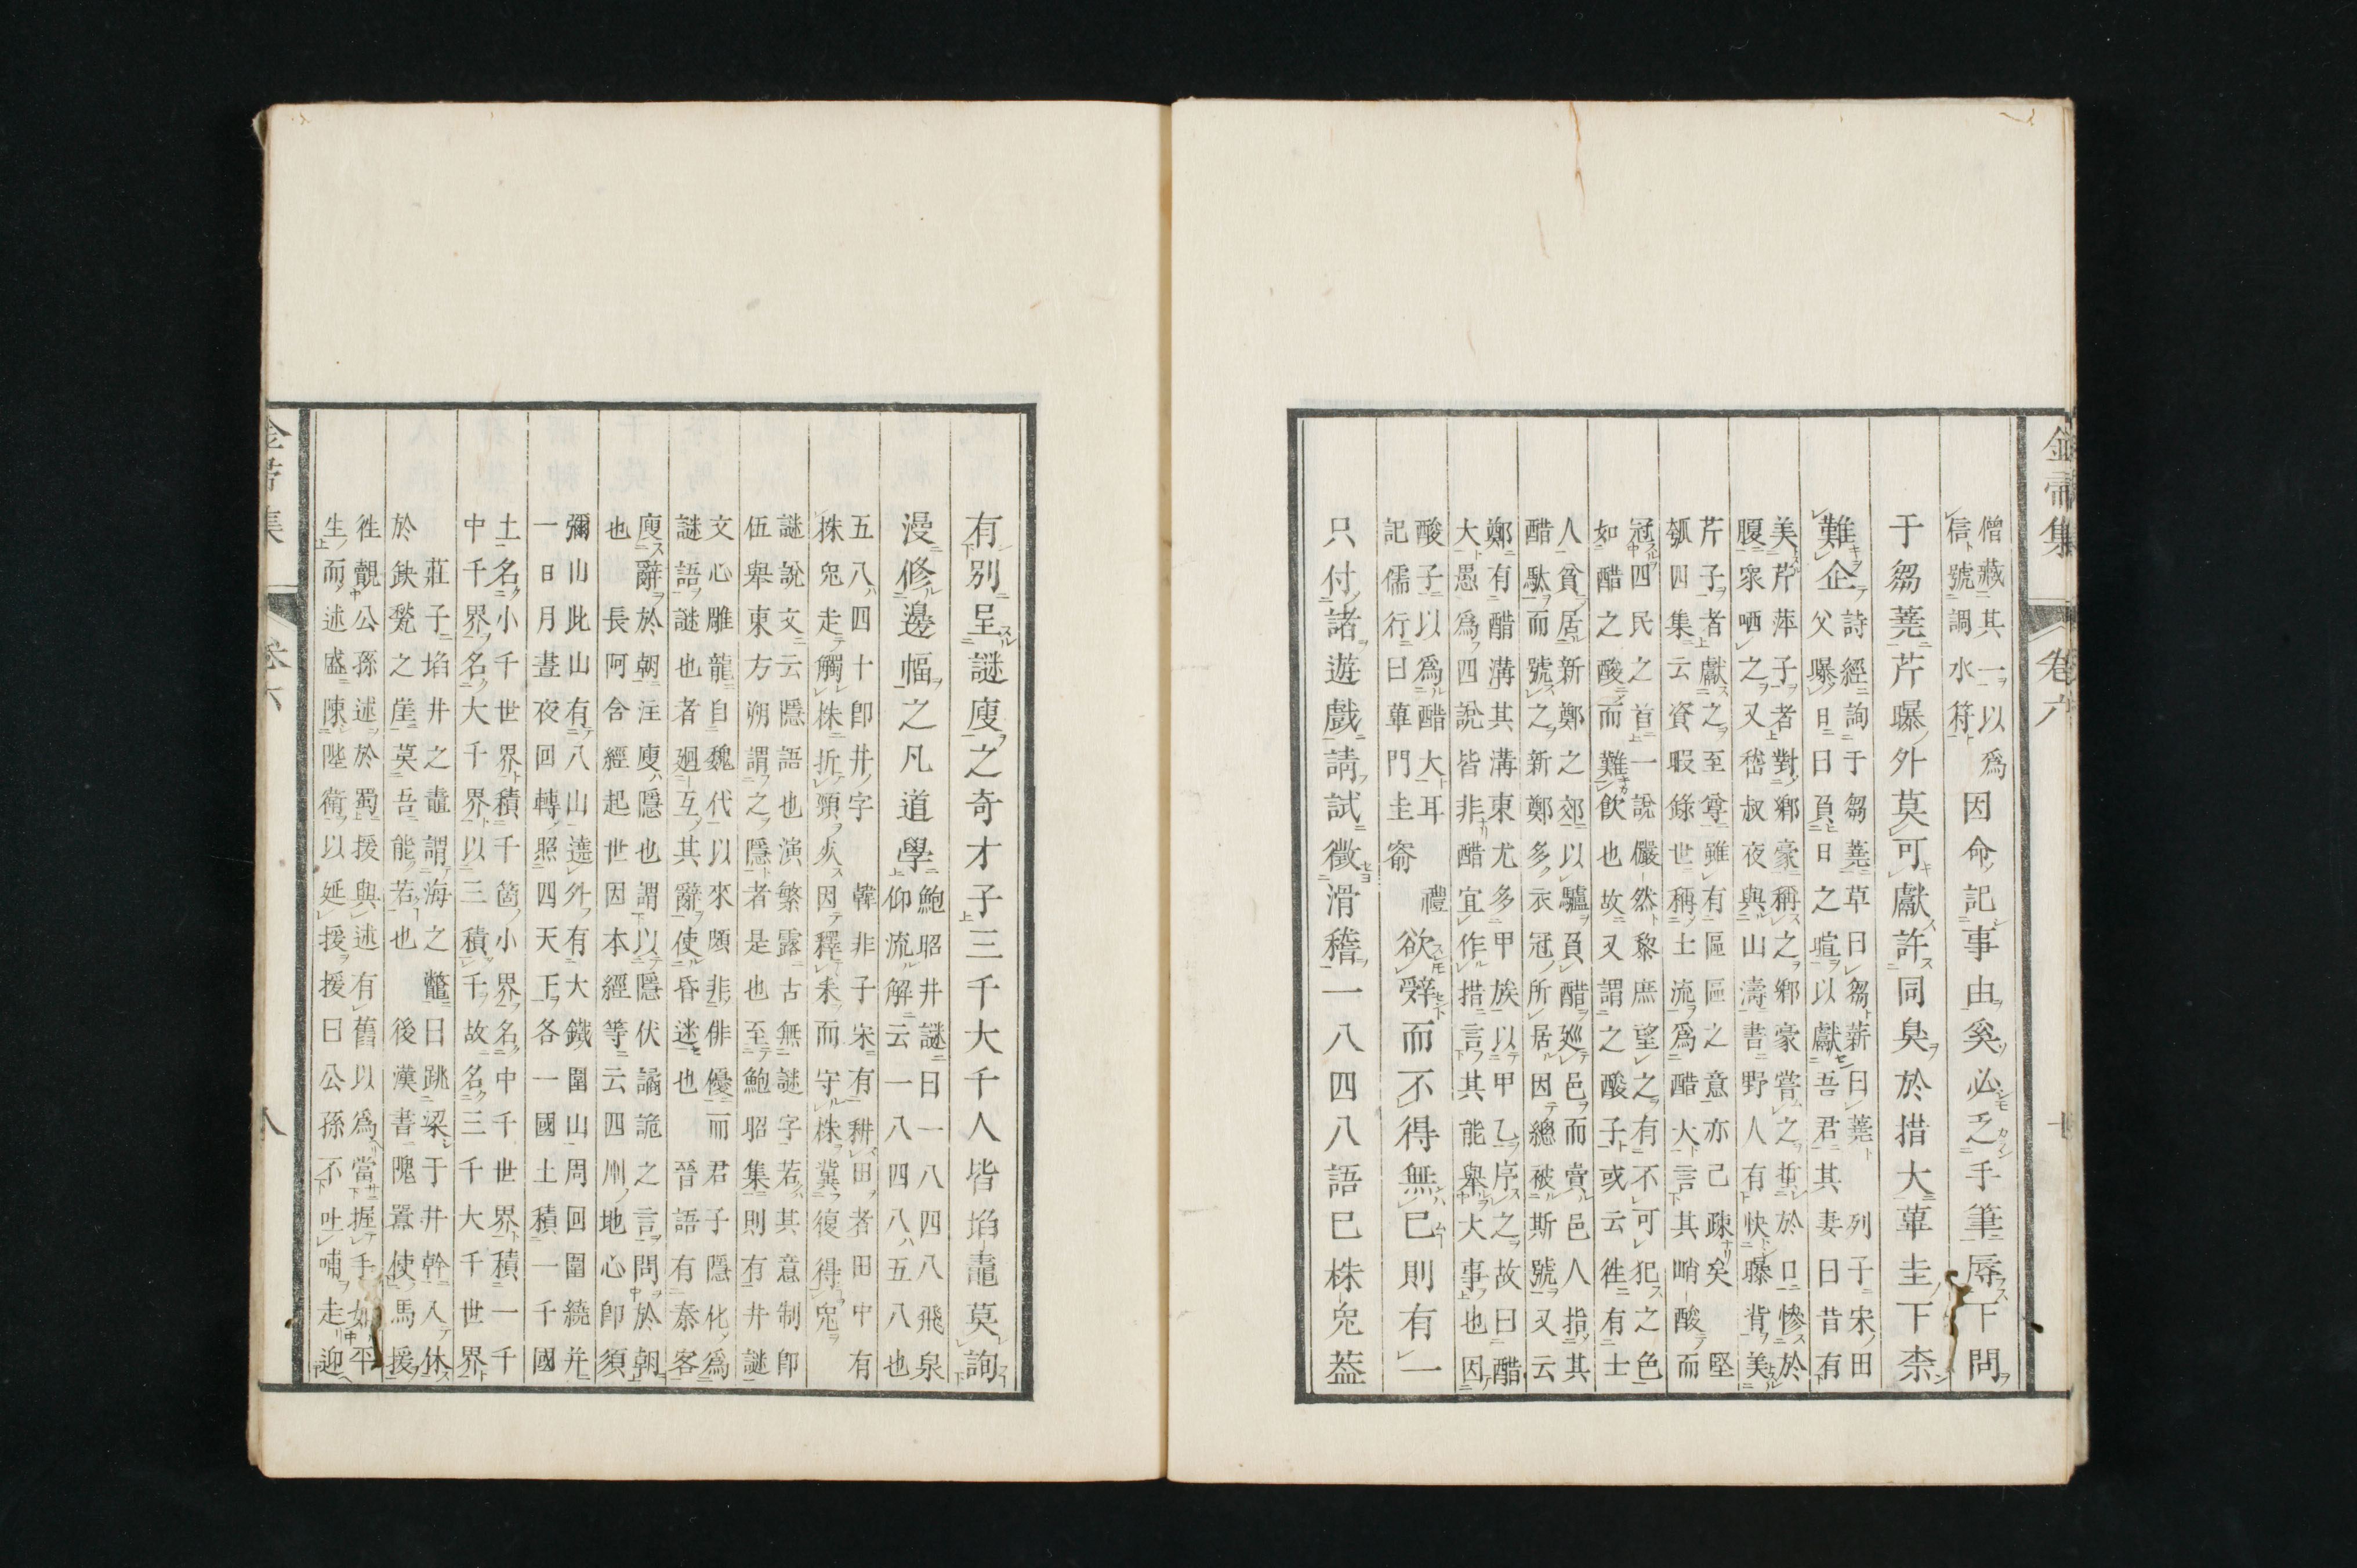 金帚集 卷六 七
僧藏其一以爲
信號調水符
因命記事由奚必乏手筆辱下問
于芻蕘芹曝外莫可獻許同臭於措大蓽圭下柰
難企
詩經詢于芻蕘草曰芻薪曰蕘 列子宋田
父曝日曰負日之暄以獻吾君其妻曰昔有
美芹萍子者對鄉豪稱之鄉豪嘗之蜇於口慘於
腹衆哂之又嵇叔夜與山濤書野人有快曝背美
芹子者獻之至尊雖有區區之意亦已疎矣 堅
瓠四集云資暇錄世稱士流爲醋大言其峭酸而
冠四民之首一說儼然黎庶望之有不可犯之色
如醋之酸而難飲也故又謂之酸子或云徃有士
人貧居新鄭之郊以驢負醋廵邑而賣邑人指其
醋馱而號之新鄭多衣冠所居因總被斯號又云
鄭有醋溝其溝東尤多甲族以甲乙序之故曰醋
大愚爲四說皆非醋宜作措言其能舉大事也因
酸子以爲醋大耳 禮
記儒行曰蓽門圭窬
欲辤而不得無已則有一
只付諸遊戲請試徵滑稽一八四八語巳株兔葢
有別呈謎廋之奇才子三千大千人皆埳鼃莫詢
漫修邊幅之凡道學
鮑昭井謎曰一八四八飛泉
仰流解云一八四八五八也
五八四十卽井字 韓非子宋有耕田者田中有
株兔走觸株折頸死因釋耒而守株冀復得兔
謎說文云隱語也演繁露古無謎字若其意制卽
伍舉東方朔謂之隱者是也至鮑昭集則有井謎
文心雕龍自魏代以來頗非俳優而君子隱化爲
謎語謎也者廻互其辭使昏迷也 晉語有秦客
廋辭於朝注廋隱也謂以隱伏譎詭之言問於朝
也 長阿含經起世因本經等云四刕地心卽須
彌山此山有八山遶外有大鐵圍山周回圍繞并
一日月晝夜回轉照四天下各一國土積一千國
土名小千世界積千箇小界名中千世界積一千
中千界名大千界以三積千故名三千大千世界
莊子埳井之鼃謂海之鼈曰跳梁于井幹入休
於缺甃之崖莫吾能若也 後漢書隗囂使馬援
徃觀公孫述於蜀援與述有舊以爲當握手如平
生而述盛陳陛衛以延援援曰公孫不吐哺走迎
金帚集 卷六 八